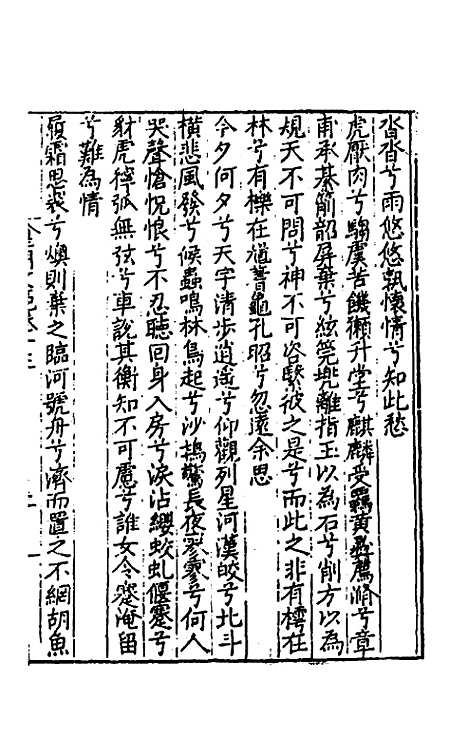 沓沓兮雨悠悠孰懷情兮知此愁
虎厭肉兮騶虞苦饑獺升堂兮麒麟受羈黃彝薦滫兮章
甫承綦箾韶屏棄兮絃筦兜離指玉以為石兮削方以為
規天不可問兮神不可咨繄彼之是兮而此之非有樗在
林兮有櫟在道蓍龜孔昭兮忽遠余思
今夕何夕兮天宇清步逍遙兮仰觀列星河漢皎兮北斗
橫悲風發兮候蟲鳴林鳥起兮沙鴇驚長夜寥寥兮何人
哭聲愴怳悢兮不忍聽回身入房兮淚沾纓蛟虬偃蹇兮
豺虎獰弧無弦兮車說其衡知不可處兮誰女令蹇淹留
兮難為情
履霜思裘兮燠則棄之臨河號舟兮濟而置之不網胡魚